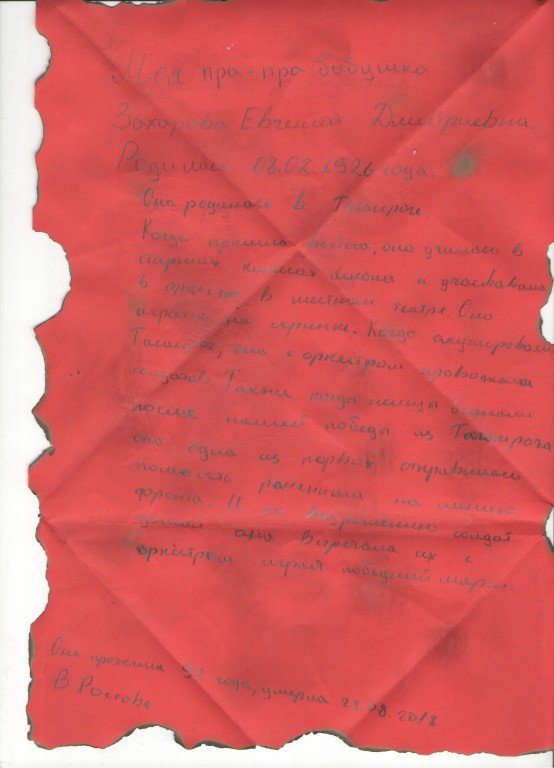 Моя пра-пра бабушка
Захарова Евгения Дмитриевна.
Родилась 08.02.1926 года.
Она родилась в Таганроге
Когда пришла война, она училась в
старших классах школы и участвовала
в оркестре в местном театре. Она
играла на скрипке. Когда окупировали
Таганрог, она с оркестром провожала
солдатов. Также когда немцы бежали
после нашей победы из Таганрога
она одна из первых отправилась
помогать раненным на линию
фронта. И по возращению солдат
домой она встречала их с
оркестром играя победный марш.
Она прожила 92 года, умерла 28.08.2018
В Ростове